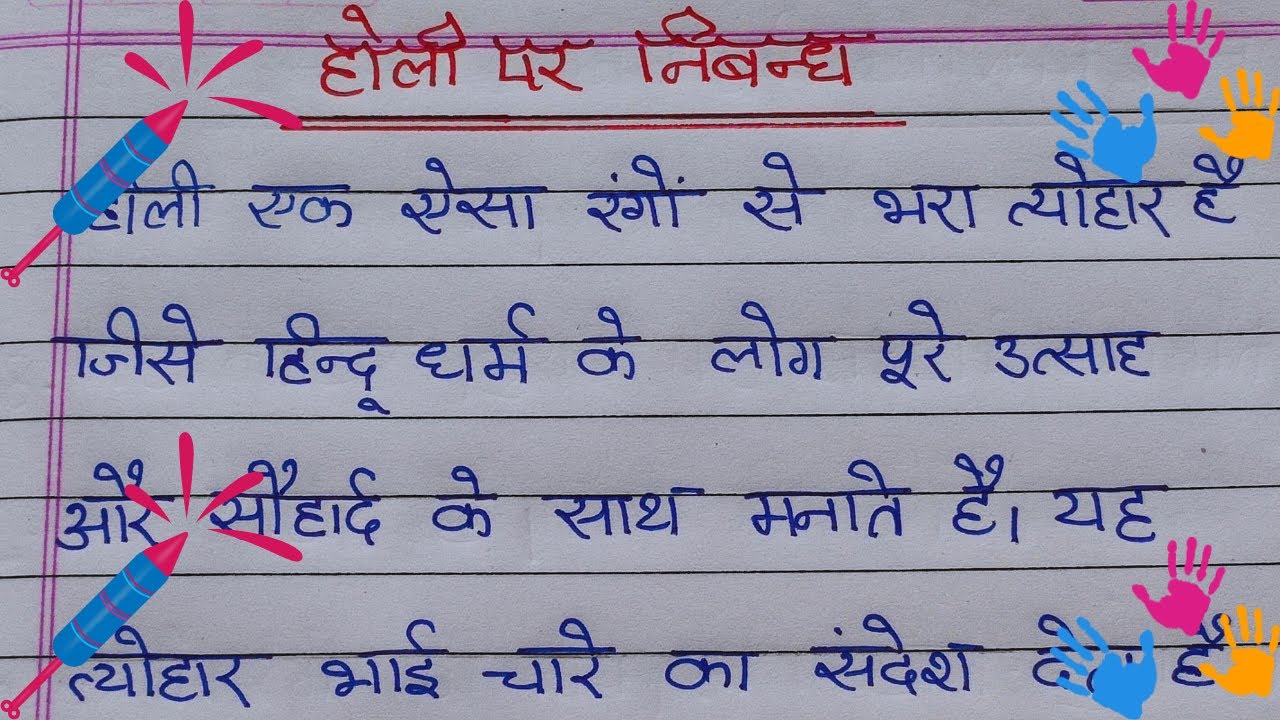 होली पर निबन्ध
होली एक ऐसा रंगों से भरा त्योहार है
जिसे हिन्दू धर्म के लोग पूरे उत्साह
और सौहार्द के साथ मनाते है। यह
त्योहार भाई चारे का संदेश है